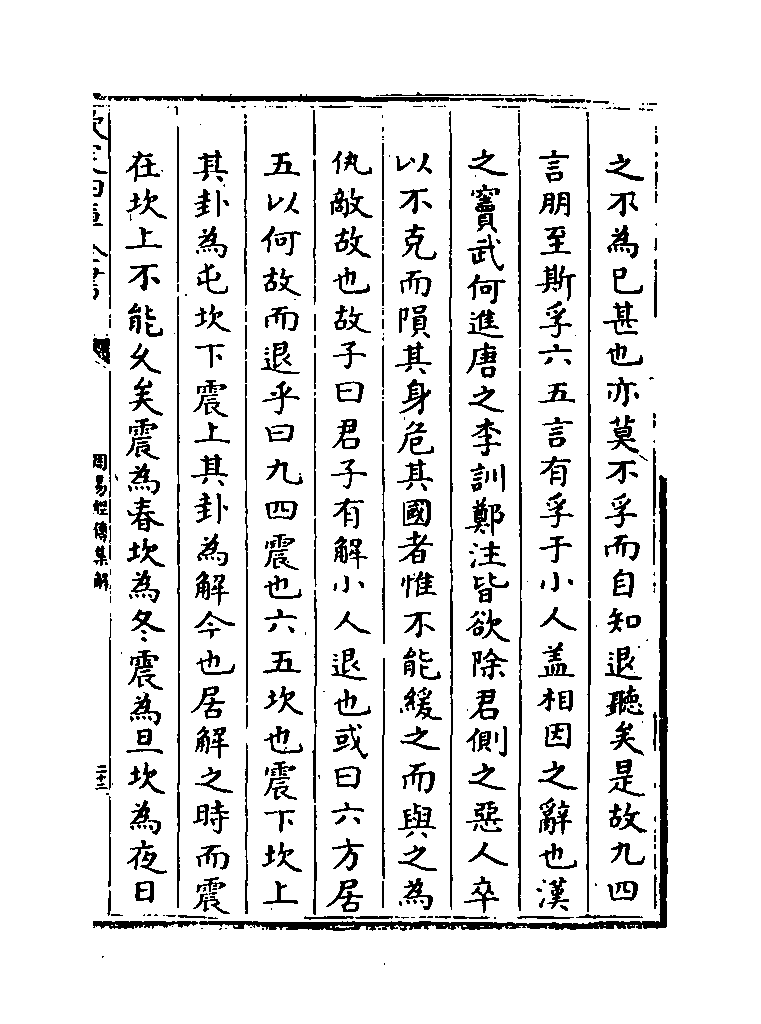 之不為已甚也亦莫不孚而自知退聽矣是故九四
言朋至斯孚六五言有孚于小人蓋相因之辭也漢
之竇武何進唐之李訓鄭注皆欲除君側之惡人卒
以不克而隕其身危其國者惟不能緩之而與之為
仇敵故也故子曰君子有解小人退也或曰六方居
五以何故而退乎曰九四震也六五坎也震下坎上
其卦為屯坎下震上其卦為解今也居解之時而震
在坎上不能久矣震為春坎為冬震為旦坎為夜日
欽定四庫全書
周易經傳集解
二十三